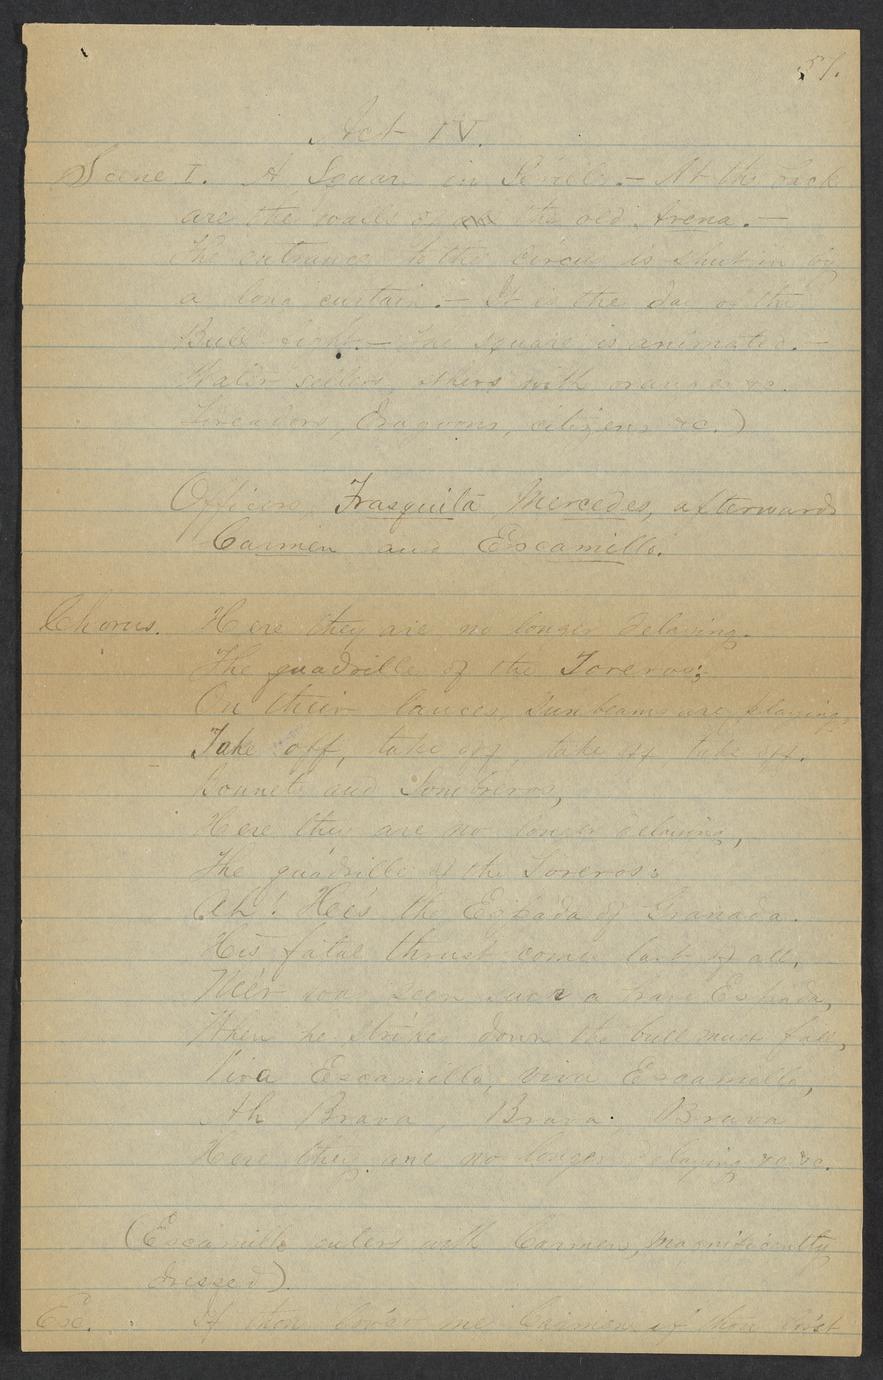 57.
Act IV.
Scene I. A Square in Seville. - At the back
are the walls of the old Arena. -
The entrance to the Circus is shut in by
a long curtain. - It is the day of the
Bull fight. - The square is animated. -
Water sellers, others with oranges &c.
Toreadors, Dragoons, citizens &c.)
Officers, Frasquita, Mercedes, afterwards
Carmen and Escamillo.
Chorus. Here they are no longer delaying.
The quadrille of the Toreros;
On their lances, Sun beams are playing,
Take off, take off, take off, take off.
Bonnets and Sombreros,
Here they are no longer delaying,
The quadrille of the Toreros;
Ah! He's the Espada of Granada.
His fatal thrust comes last of all,
Ne'er was seen such a brave Espada,
When he strikes down the bull must fall,
Viva Escamillo, viva Escamillo,
Ah Brava, Brava. Brava
Here they are no longer delaying &c &c.
(Escamillo enters with Carmen, magnificently
dressed)
Esc. If thou lov'st me Carmen, if thou lov'st